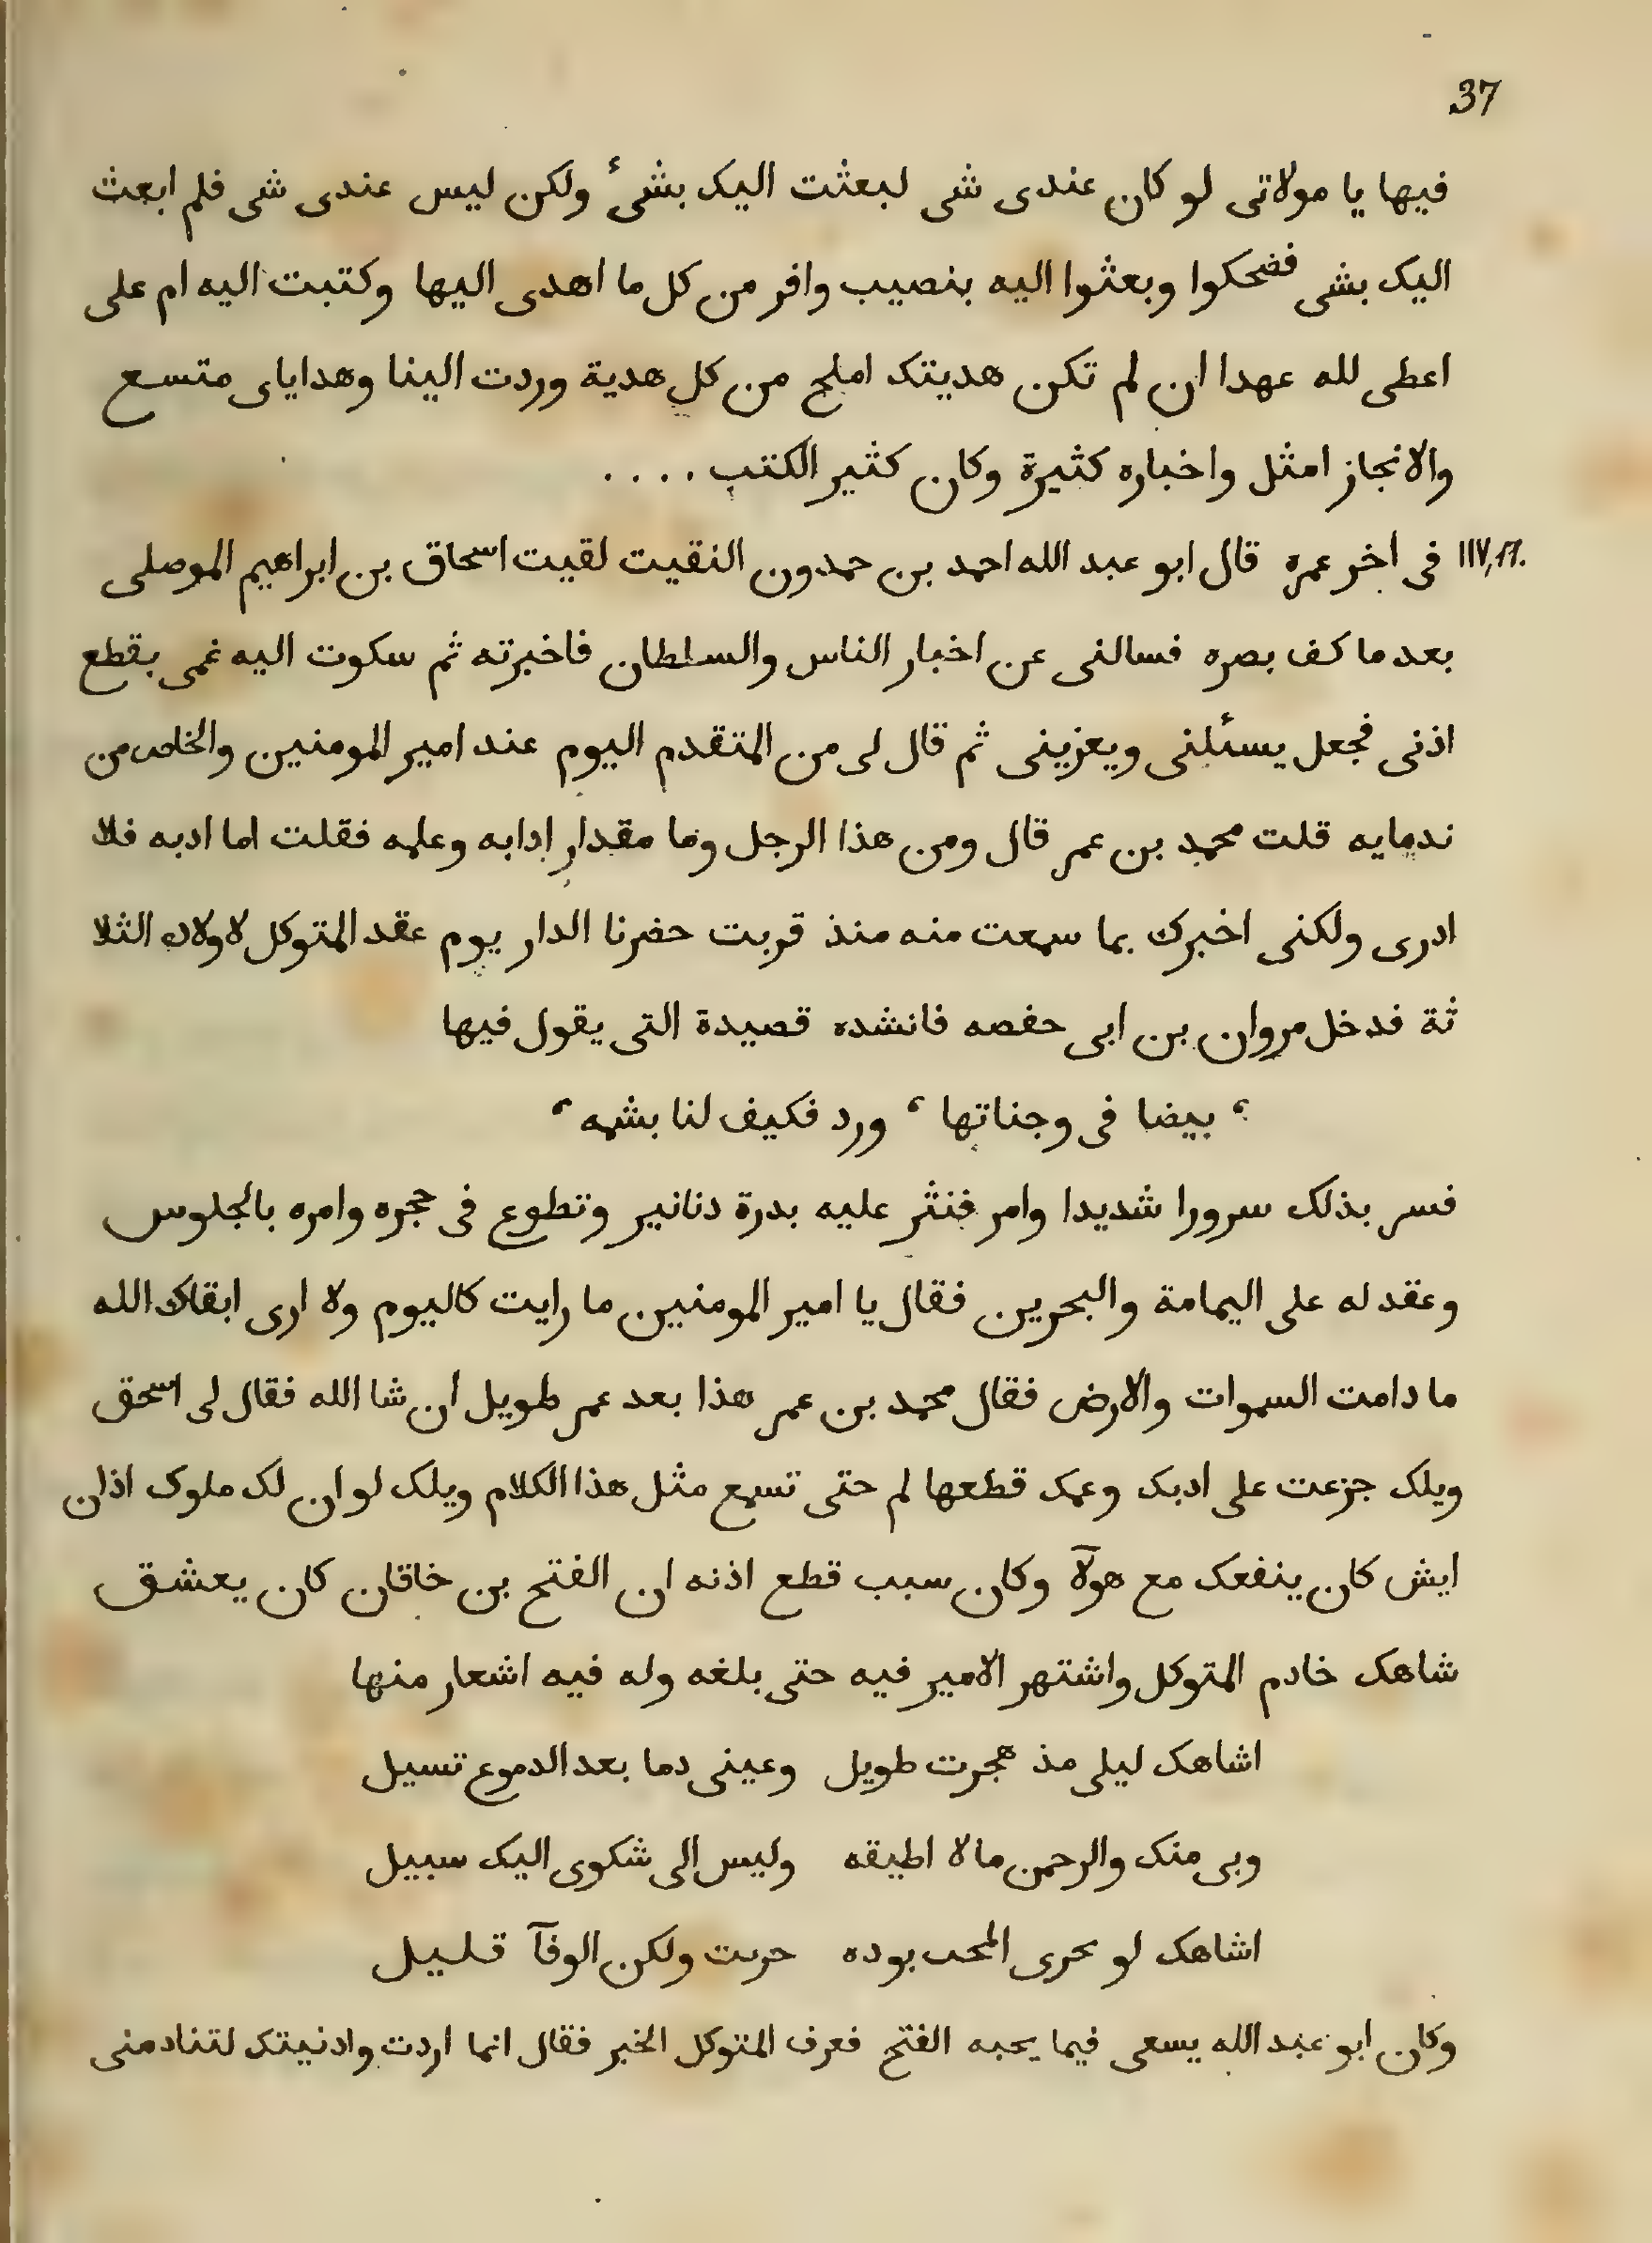 37
فيها يا مولاتى لو كان عندى شى لبعثت اليك بشىٔ ولكن ليس عندى شى فلم ابعث
اليك بشى فضحكوا وبعثوا اليه بنصيب وافر من كل ما اهدى اليها وكتبت اليه ام على
اعطى لله عهدا ان لم تكن هديتك املح من كل هدية وردت الينا وهداياى متسع
والانجاز امثل واخباره كثيرة وكان كثير الكتب ....
فى اخر عمره قال ابو عبد الله احمد بن حمدون النقيت لقيت اسحاق بن ابراهيم الموصلى
بعد ما كف بصره فسالنى عن اخبار الناس والسلطان فاخبرته ثم سكوت اليه غمى بقطع
اذنى فجعل يسئلنى ويعزينى ثم قال لى من المتقدم اليوم عند امير المومنين والخاص من
ندمايه قلت محمد بن عمر قال ومن هذا الرجل وما مقدار ادابه وعلمه فقلت اما ادبه فلا
ادرى ولكنى اخبرك بما سمعت منه منذ قربت حضرنا الدار يوم عقد المتوكل لاولاده الثلا
ثة فدخل مروان بن ابى حفصه فانشده قصيدة التى يقول فيها
، بيضا فى وجناتها ، ورد فكيف لنا بشمه ،
فسر بذلك سرورا شديدا وامر فنثر عليه بدرة دنانير وتطوع فى حجره وامره بالجلوس
وعقد له على اليمامة والبحرين فقال يا امير المومنين ما رايت كاليوم ولا ارى ابقاك الله
ما دامت السموات والارض فقال محمد بن عمر هذا بعد عمر طويل ان شا الله فقال لى اسحق
ويلك جزعت على ادبك وعمك قطعها لم حتى تسمع مثل هذا الكلام ويلك لو ان لك ملوك اذان
ايش كان ينفعك مع هولآ وكان سبب قطع اذنه ان الفتح بن خاقان كان يعشق
شاهك خادم المتوكل واشتهر الامير فيه حتى بلغه وله فيه اشعار منها
اشاهك ليلى مذ هجرت طويل وعينى دما بعد الدموع تسيل
وبى منك والرحمن مالا اطيقه وليس الى شكوى اليك سبيل
اشاهك لو يحرى المحب بوده حرىت ولكن الوفآ قليل
وكان ابو عبد الله يسعى فيما يحبه الفتح فعرف المتوكل الخبر فقال انما اردت وادنيتك لتنادمنى